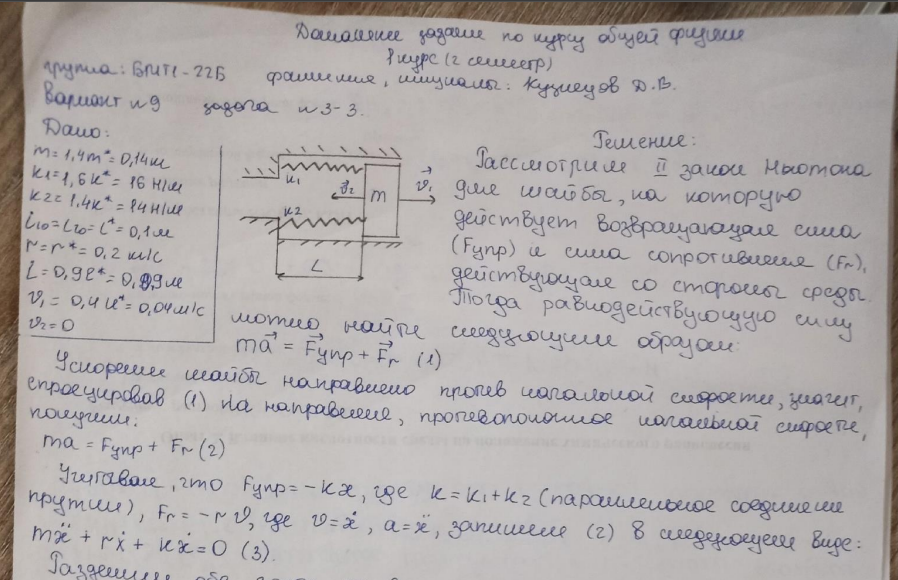 Домашнее задание по курсу общей физики
1 курс (2 семестр)
группа: БМТ1-22Б фамилия, инициалы: Кузнецов Д.В.
Вариант №9 задача №3-3.
Дано:
m=1,4m*=0,14кг
k1=1,6k*=16 Н/м
k2=1,4k*=14Н/м
l10=l20=l*=0,1м
r=r*=0,2 кг/с
L=0,9l*=0,09м
v1=0,4u*=0,04м/с
v2=0
k1
v2
m
v1
k2
L
Решение:
Рассмотрим II закон Ньютона
для шайбы, на которую
действует возвращающая сила
(Fупр) и сила сопротивления (Fr),
действующая со стороны среды.
Тогда равнодействующую силу
можно найти следующим образом:
ma = Fупр + Fr (1)
Ускорение шайбы направлено против начальной скорости, значит,
спроецировав (1) на направление, противоположное начальной скорости,
получим:
ma = Fупр + Fr (2)
Учитывая, что Fупр=-kx, где k=k1+k2 (параллельное соединение
пружин), Fr=-rv, где v=ẋ, a=ẍ, запишем (2) в следующем виде:
mẍ + rẋ + kẋ=0 (3).